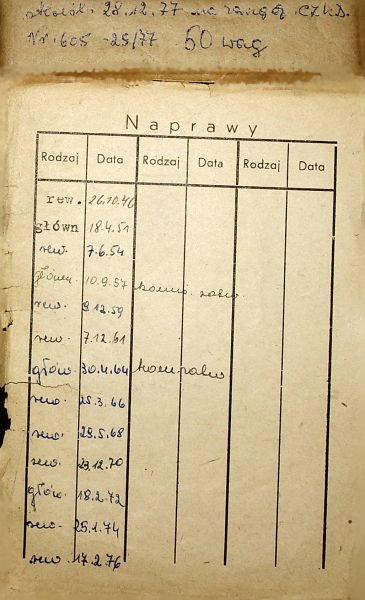 28.12.77 na
Nr. 605-25/77 50 wag
Naprawy
Rodzaj Data Rodzaj Data Rodzaj Data
rew. 26.10.46
główn 18.4.51
rew. 7.6.54
główn. 10.9.57
rew. 9.12.59
rew. 7.12.61
głów. 30.4.64
rew. 25.3.66
rew. 29.5.68
rew. 23.12.70
głów. 18.2.72
rew. 25.1.74
rew. 17.2.76